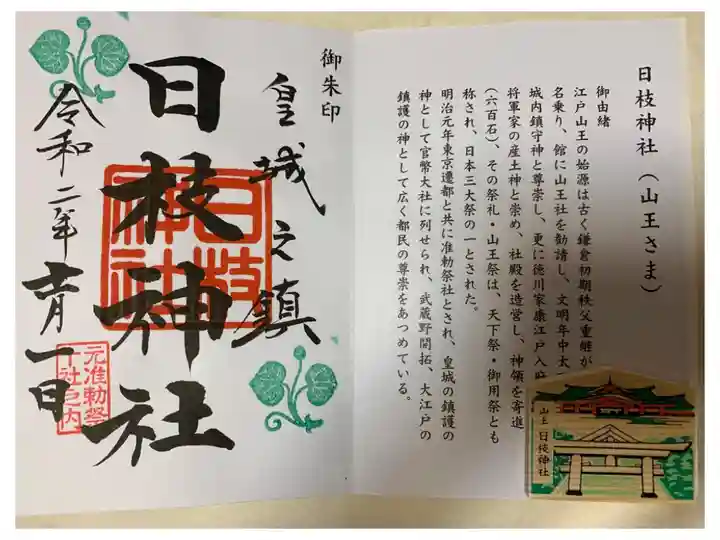 日枝神社（山王さま）
御由緒
江戸山王の始源は古く鎌倉初期秩父重継が
名乗り、館に山王社を勧請し、文明年中太
城内鎮守神と尊崇し、更に徳川家康江戸入府
将軍家の産土神と崇め、社殿を造営し、神領を寄進
（六百石）、その祭礼・山王祭は、天下祭・御用祭とも
称され、日本三大祭の一とされた。
明治元年東京遷都と共に准勅祭社とされ、皇城の鎮護の
神として官幣大社に列せられ、武蔵野開拓、大江戸の
鎮護の神として広く都民の尊崇をあつめている。
山王日枝神社
御朱印
皇城之鎮
日枝神社
日枝
神社
令和二年十一月一日
元准勅祭
十社之内